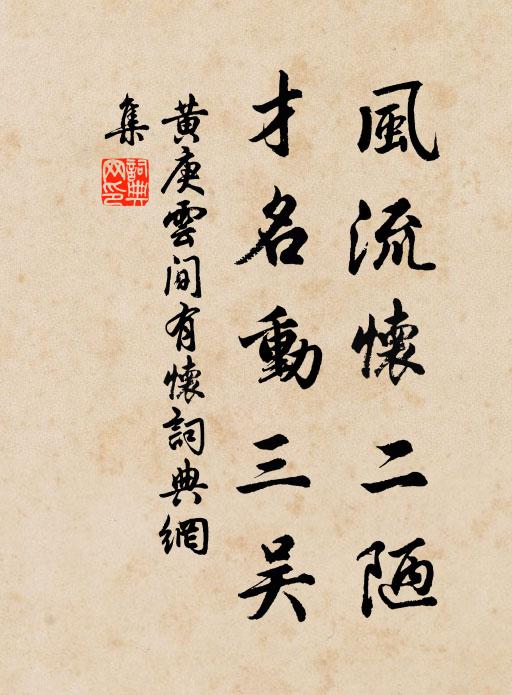 風流懷二陋
才名動三吴
黄庚雲间有懷詞典網
集
詞典网印